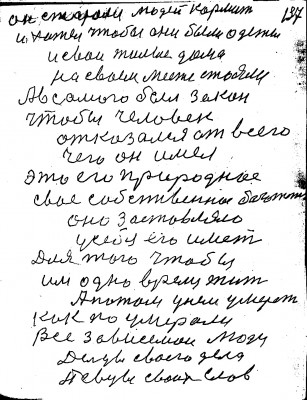 он старали людей кормит 137
и хотел чтобы они были одеты
и свои жилые дома
на своём месте стояли
А всамого был закон
чтобы человек
отказался от всего
чего он имел
это его природное
свое собственное богатств
оно заставляло
у себя его имет
Для того чтобы
им одно время жит
А потом у нем умерет
как по умерали
Все зависемои люди
Делцы своего дела
Певцы своих слов